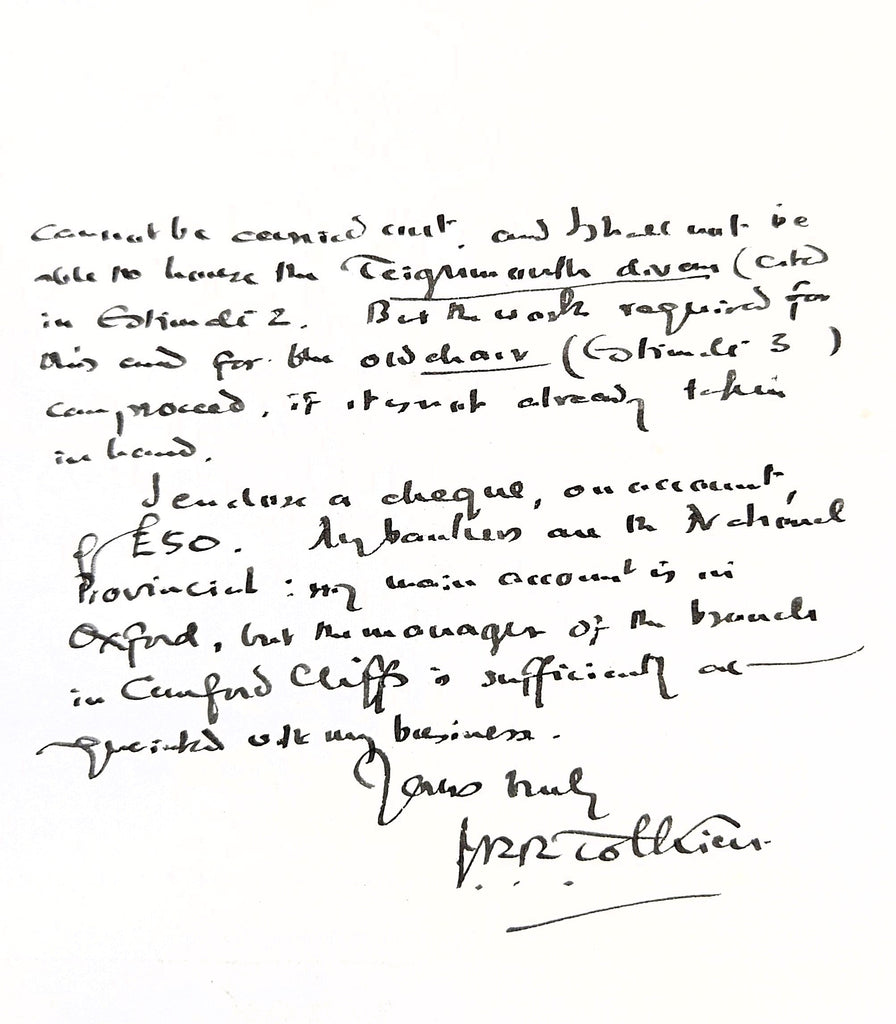 cannot be carried out, and I shall not be
able to house the Teignmouth divan (cited
in Estimate 2. But the work required for
this and for the old chair (Estimate 3 )
can proceed, if it is not already taken
in hand.
I enclose a cheque, on account,
of £50. My bankers are the National
Provincial : my main account is in
Oxford, but the manager of the branch
in Canford Cliffs is sufficiently ac-
quainted with my business.
Yours truly
JRR Tolkien.